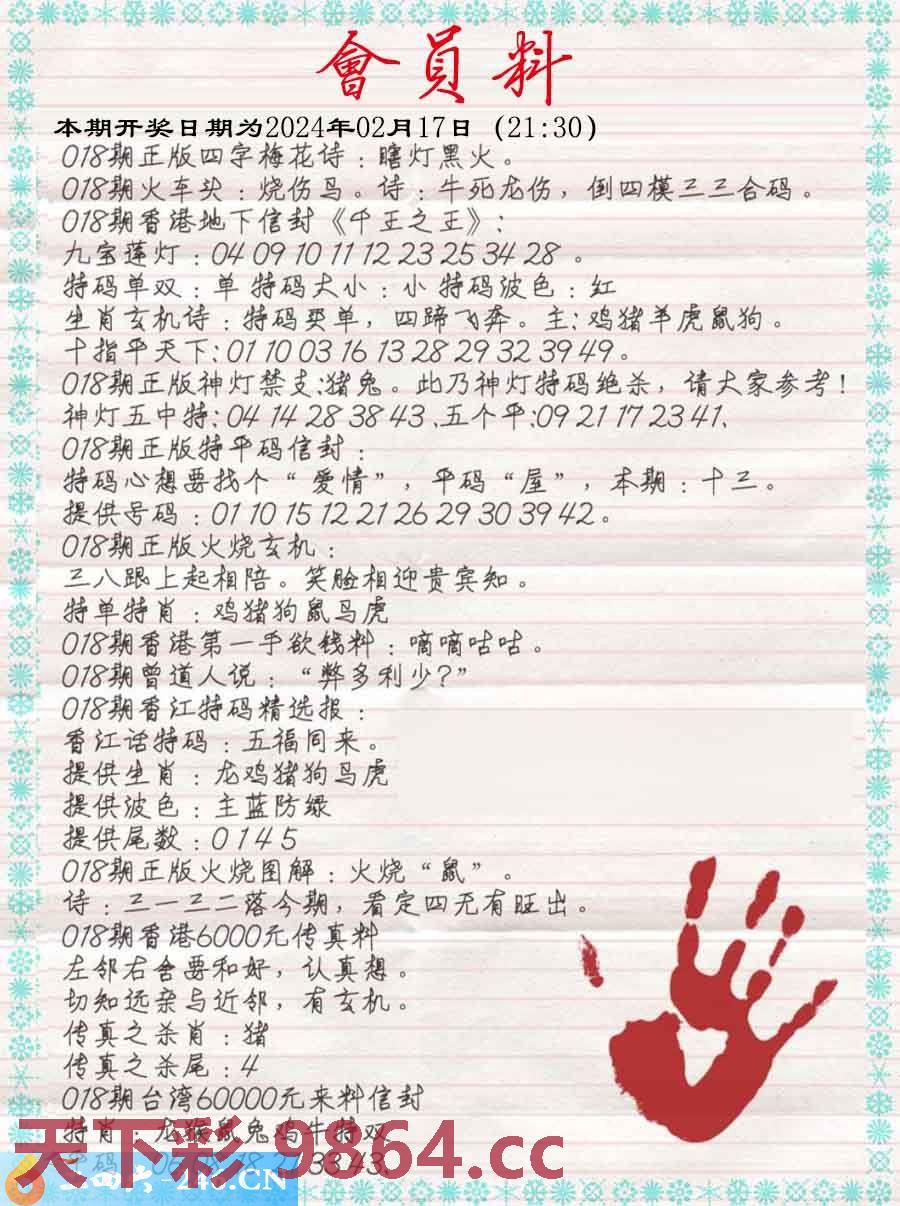 會員料
本期开奖日期为2024年02月17日 (21:30)
018期正版四字梅花诗：瞎灯黑火。
018期火车头：烧伤鸟。诗：牛死龙伤，倒四模三三合码。
018期香港地下信封《千王之王》：
九宝莲灯：04 09 10 11 12 23 25 34 28 。
特码单双：单 特码大小：小 特码波色：红
生肖玄机诗：特码买单，四蹄飞奔。主：鸡猪羊虎鼠狗。
十指平天下：01 10 03 16 13 28 29 32 39 49。
018期正版神灯禁支：猪兔。此乃神灯特码绝杀，请大家参考！
神灯五中特：04 14 28 38 43 、五个平：09 21 17 23 41、
018期正版特平码信封：
特码心想要找个“爱情”，平码“屋”，本期：十三。
提供号码：01 10 15 12 21 26 29 30 39 42。
018期正版火烧玄机：
三八跟上起相陪。笑脸相迎贵宾知。
特单特肖：鸡猪狗鼠马虎
018期香港第一手欲钱料：嘀嘀咕咕。
018期曾道人说：“弊多利少？”
018期香江特码精选报：
香江话特码：五福同来。
提供生肖：龙鸡猪狗马虎
提供波色：主蓝防绿
提供尾数：0 1 4 5
018期正版火烧图解：火烧“鼠”。
诗：三一三二落今期，看定四无有旺出。
018期香港6000元传真料
左邻右舍要和好，认真想。
切知远亲与近邻，有玄机。
传真之杀肖：猪
传真之杀尾：4
018期台湾60000元来料信封
特肖：龙猴鼠兔鸡牛特双
33 43、
天下彩 9864.cc
二四六-246.CN